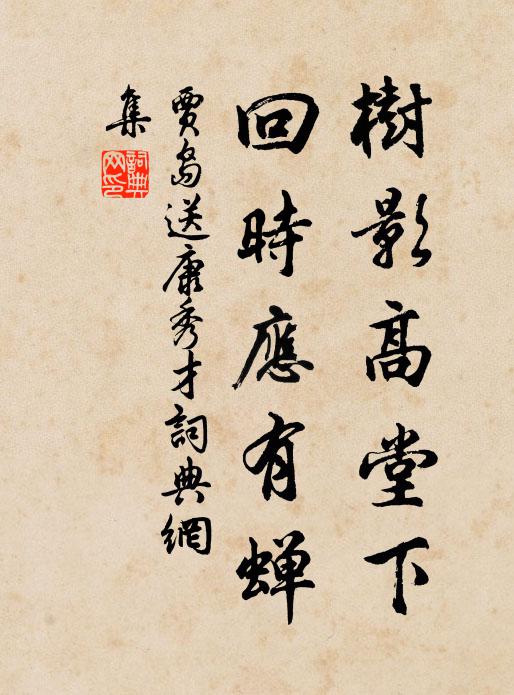 樹影高堂下
回時應有蝉
賈島送康秀才詞典網
集
詞典网印